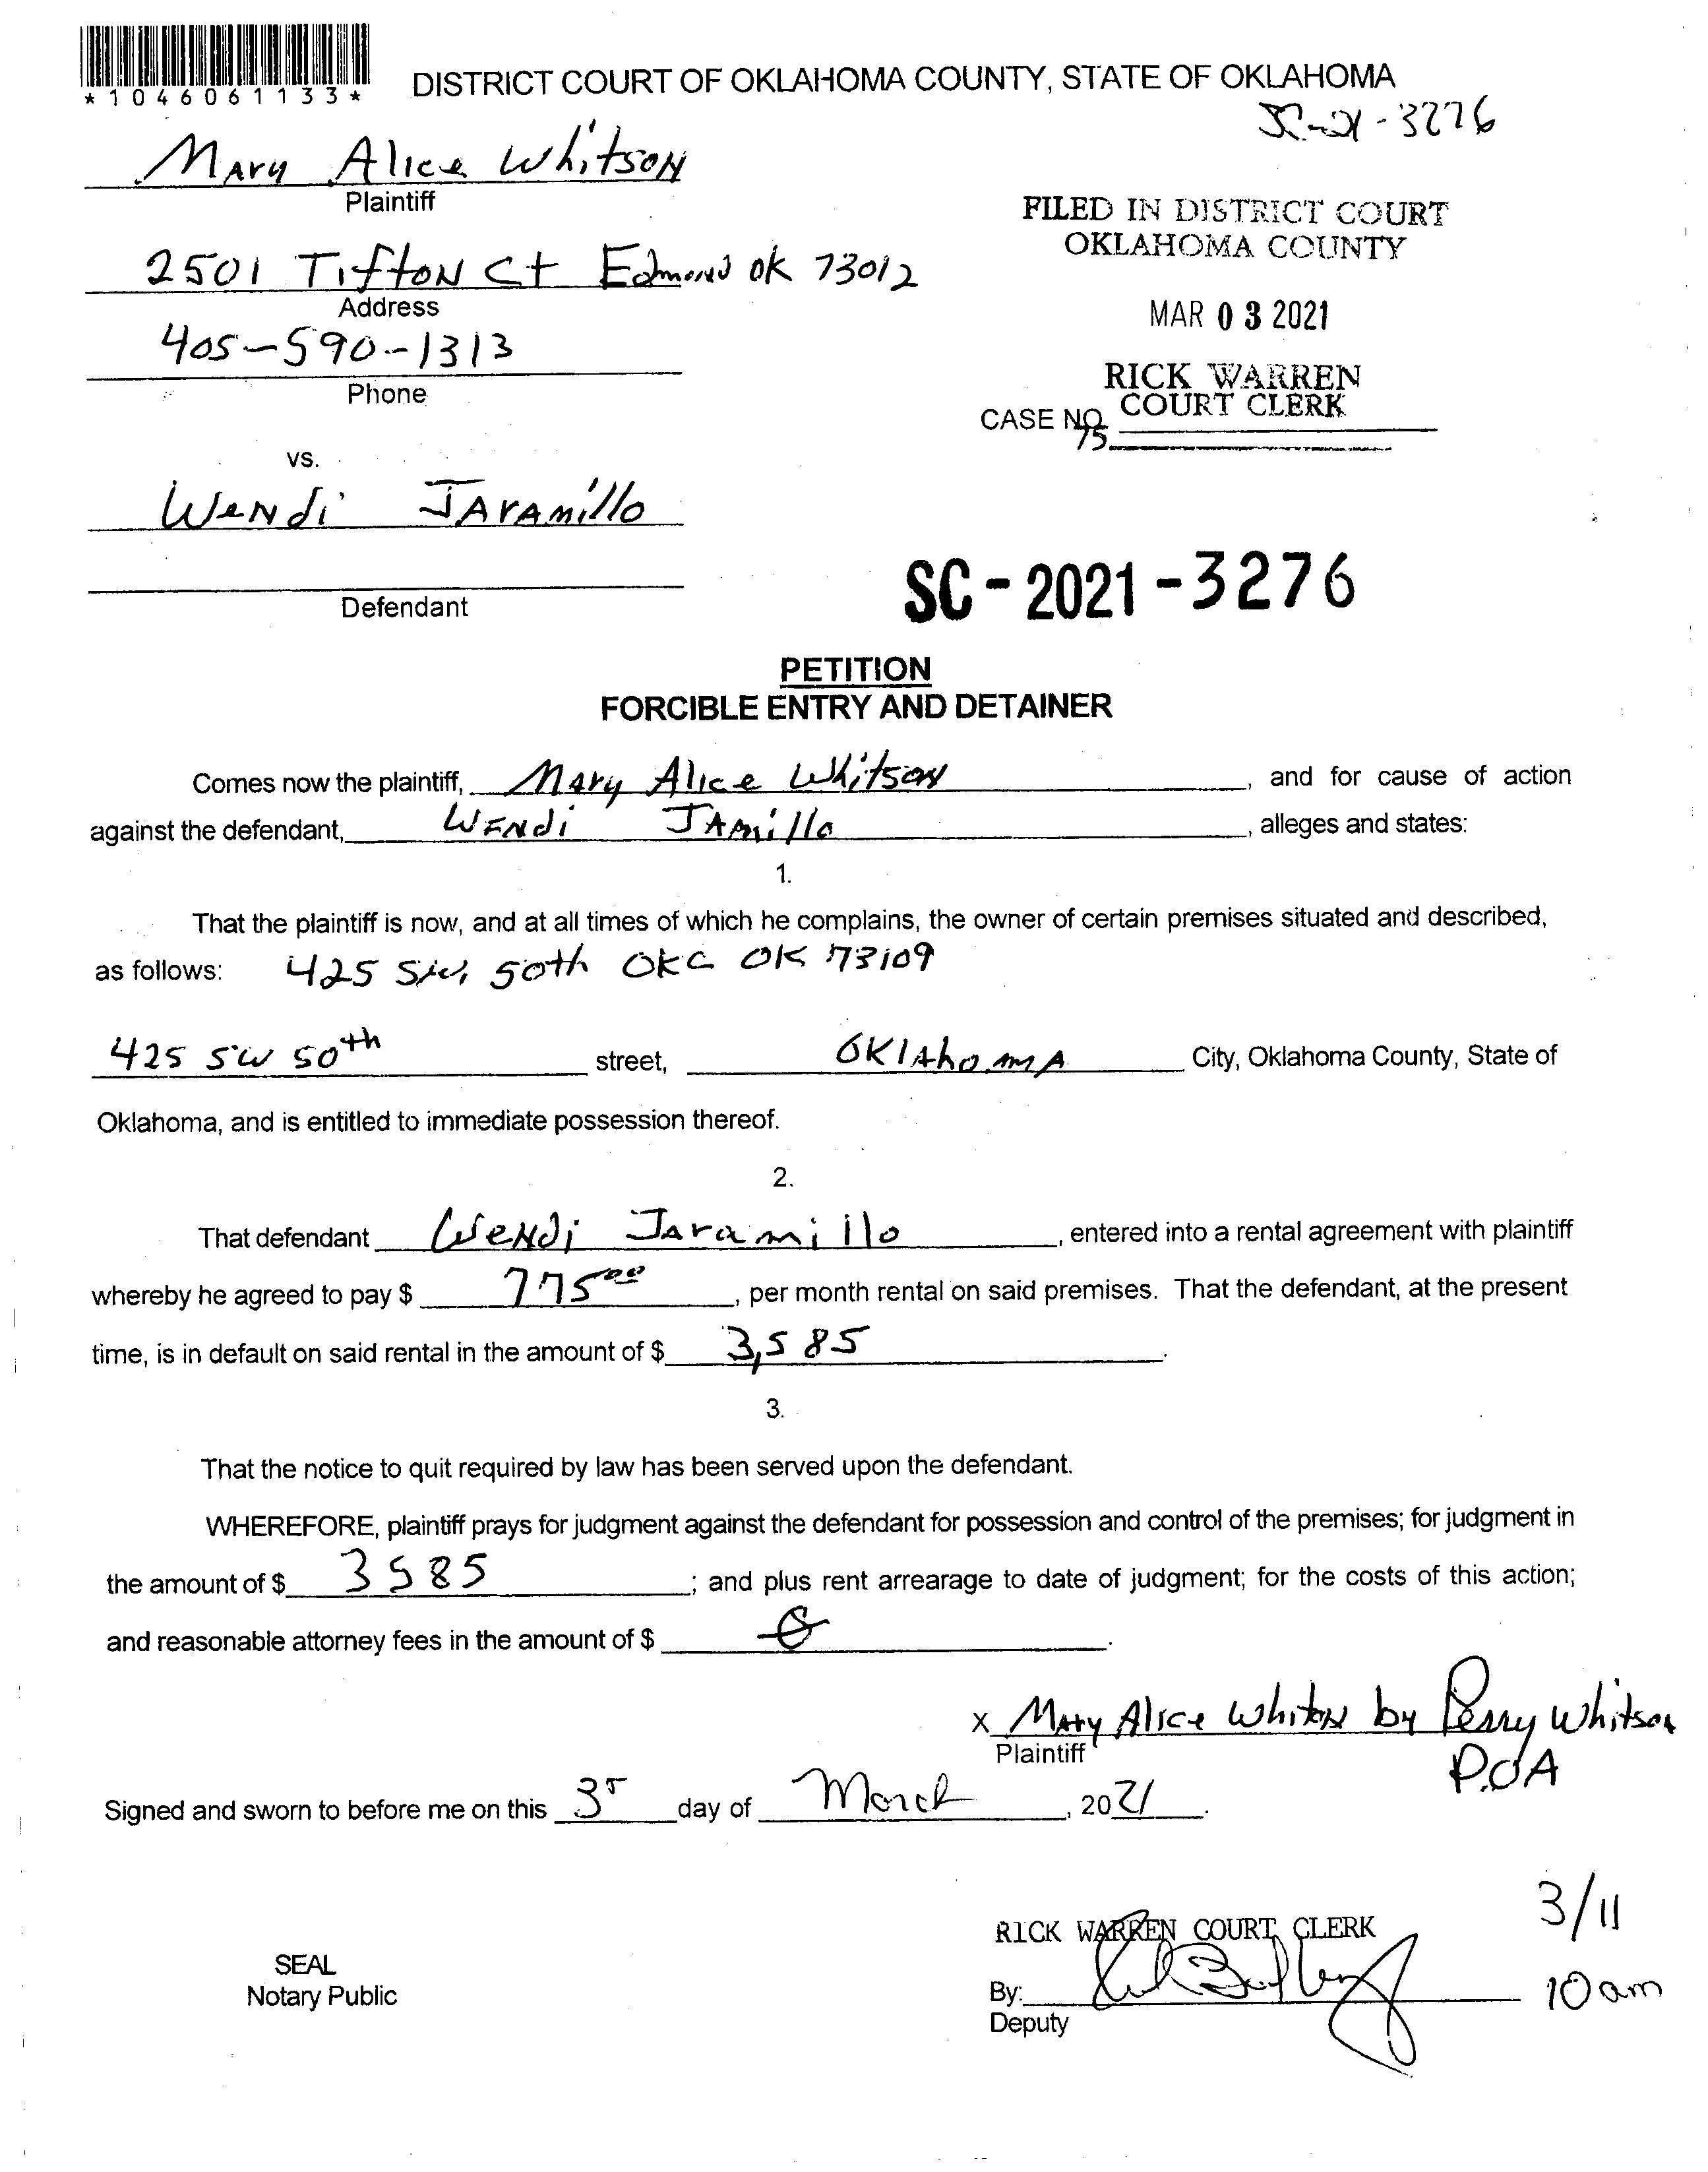 *1046061133*
DISTRICT COURT OF OKLAHOMA COUNTY, STATE OF OKLAHOMA
SC-21-3276
Mary Alice Whitson
Plaintiff
FILED IN DISTRICT COURT
OKLAHOMA COUNTY
2501 Tifton Ct Edmond OK 73012
Address
MAR 03 2021
405-590-1313
Phone
RICK WARREN
COURT CLERK
CASE NO.
75
vs.
Wendi Jaramillo
Defendant
SC-2021-3276
PETITION
FORCIBLE ENTRY AND DETAINER
Comes now the plaintiff, Mary Alice Whitson, and for cause of action
against the defendant, Wendi Jamillo, alleges and states:
1.
That the plaintiff is now, and at all times of which he complains, the owner of certain premises situated and described,
as follows: 425 SW 50th OKC OK 73109
425 SW 50th street, Oklahoma City, Oklahoma County, State of
Oklahoma, and is entitled to immediate possession thereof.
2.
That defendant Wendi Jaramillo, entered into a rental agreement with plaintiff
whereby he agreed to pay $ 775 00, per month rental on said premises. That the defendant, at the present
time, is in default on said rental in the amount of $ 3,585.
3.
That the notice to quit required by law has been served upon the defendant.
WHEREFORE, plaintiff prays for judgment against the defendant for possession and control of the premises; for judgment in
the amount of $ 3585; and plus rent arrearage to date of judgment; for the costs of this action;
and reasonable attorney fees in the amount of $ 0.
x Mary Alice Whitson by Perry Whitson
Plaintiff
P.O.A
Signed and sworn to before me on this 3 day of March, 2021.
3/11
RICK WARREN COURT CLERK
SEAL
Notary Public
By:
10 am
Deputy